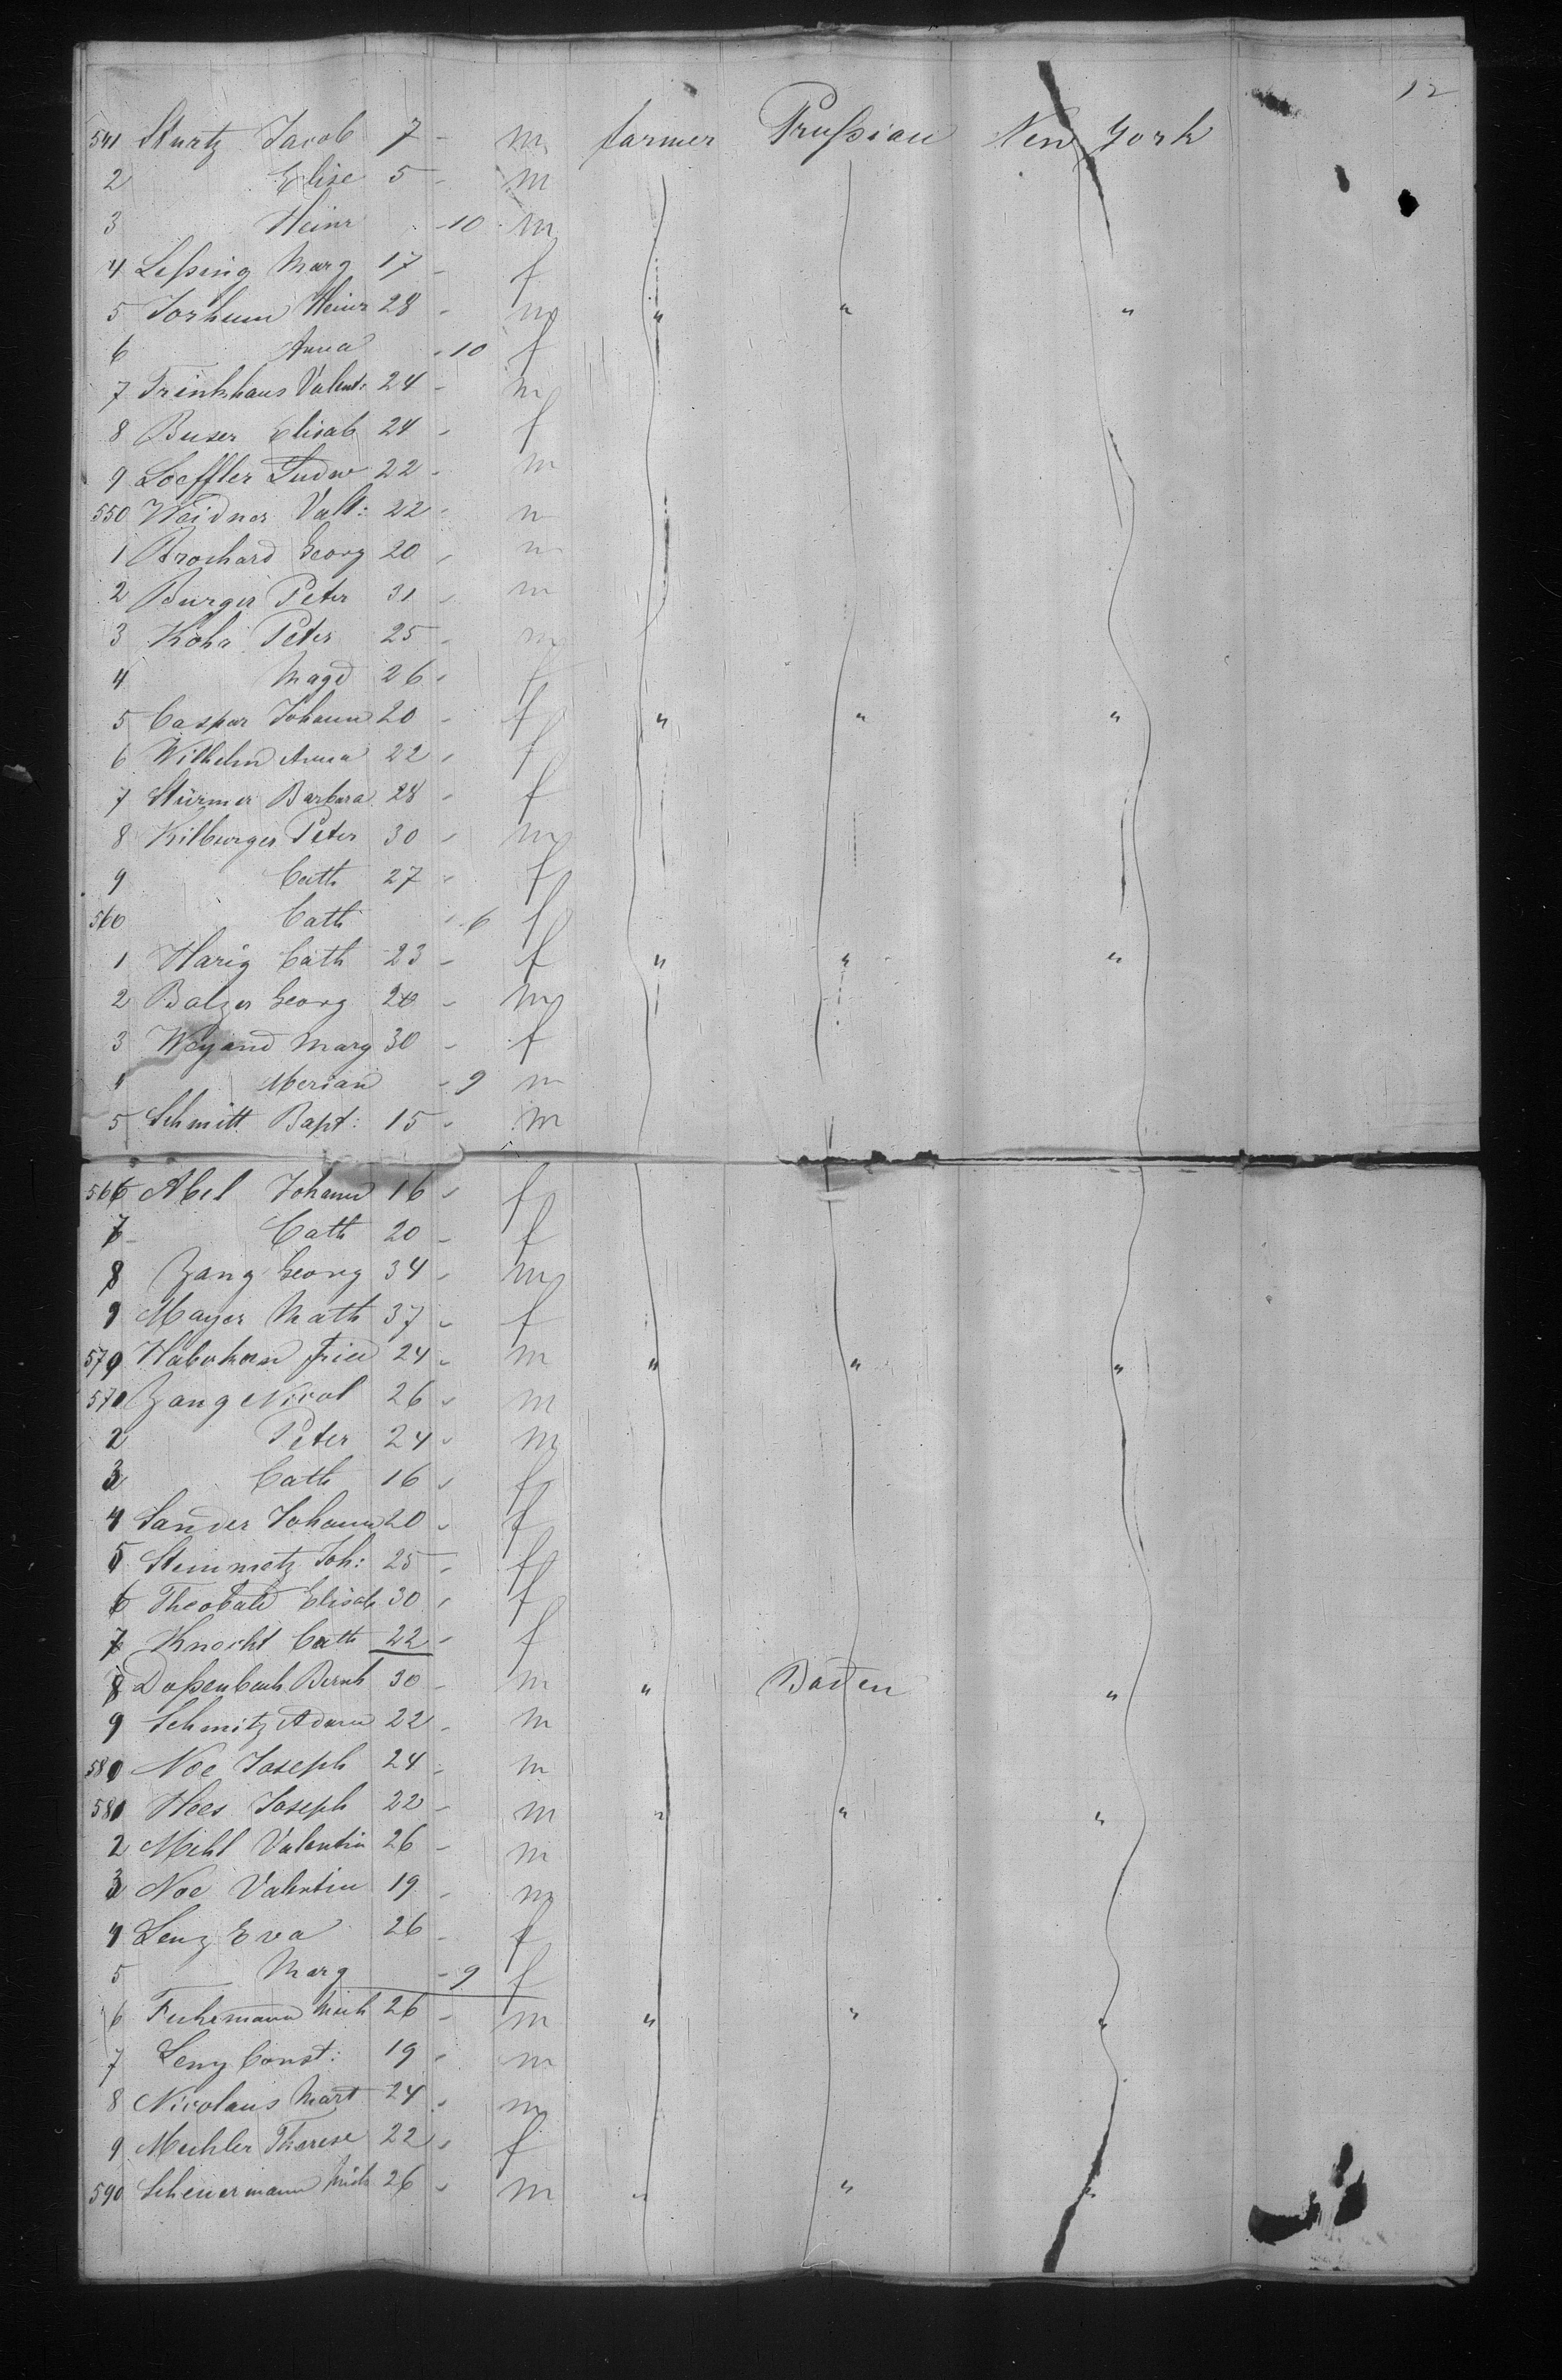 12
541 Sturtz Jacob 7 - m farmer Prußian New York
2 Elise 5 - m
3 Heinr - 10 m
4 Leßing Marg 17 - f
5 Jorhum Heinr 28 - m " " "
6 Anna - 10 f
7 Trinkhaus Valent: 24 - m
8 Buser Elisab 24 - f
9 Loeffler Ludw 22 - m
550 Weidner Valt: 22 - m
1 Brochard Georg 20 - m
2 Burger Peter 31 - m
3 Koha Peter 25 - m
4 Magd 26 - f
5 Caspar Johann 20 - f " " "
6 Wilhelm Anna 22 - f
7 Stürmer Barbara 28 - f
8 Kilburger Peter 30 - m
9 Cath 27 - f
560 Cath - 6 f
1 Harig Cath 23 - f " " "
2 Balzer Georg 20 - m
3 Weyand Marg 30 - f
4 Merian - 9 m
5 Schmitt Bapt: 15 - m
566 Abel Johann 16 - f
7 Cath 20 - f
8 Zang Georg 34 - m
9 Mayer Math 37 - f
570 Haberkorn Fried 24 - m " " "
571 Zang Nicol 26 - m
2 Peter 24 - m
3 Cath 16 - f
4 Sander Johann 20 - f
5 Steinmetz Joh: 25 - f
6 Theobald Elisab 30 - f
7 Knecht Cath 22 - f
8 Doßenbach Bernh 30 - m " Baden "
9 Schmitz Adam 22 - m
580 Noe Joseph 24 - m
581 Hees Joseph 22 - m " " "
2 Mehl Valentin 26 - m
3 Noe Valentin 19 - m
4 Lenz Eva 26 - f
5 Marg - 9 f
6 Fuhrmann Mich 26 - m " " "
7 Lenz Const: 19 - m
8 Nicolaus Mart 24 - m
9 Mechler Therese 22 - f
590 Scheuermann Mich 26 - m " " "